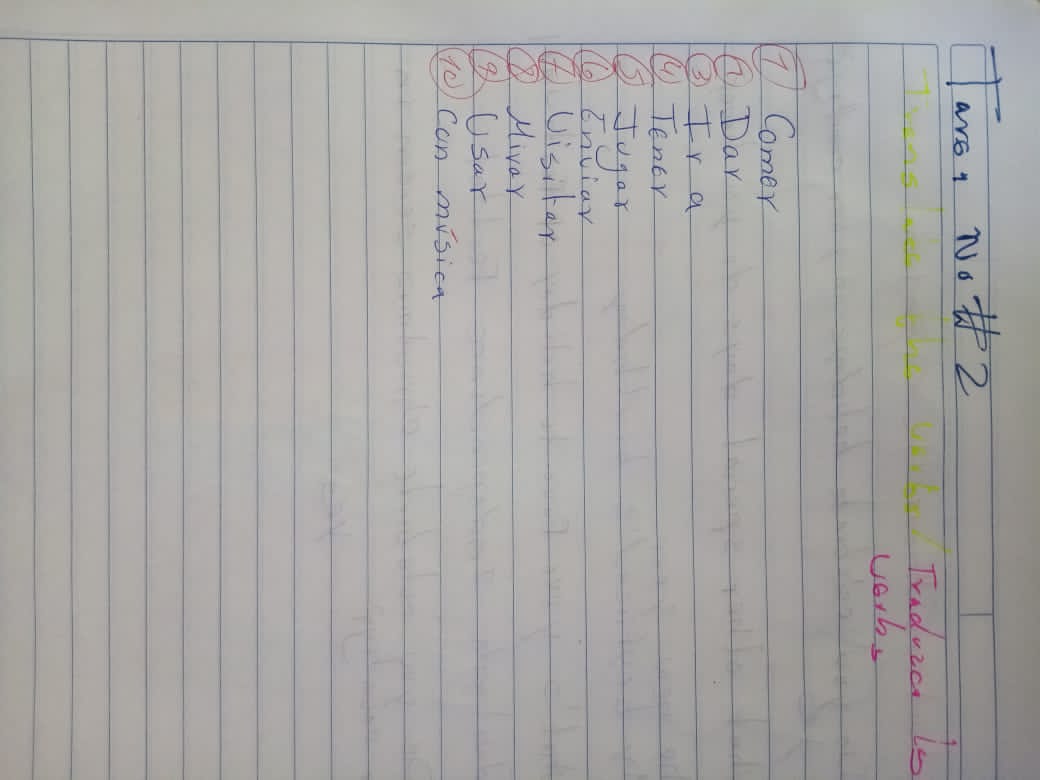 Tarea No # 2
Translate the verbs / Traduzca los
verbs
1 Comer
2 Dar
3 Ir a
4 Tener
5 Jugar
6 Enviar
7 Visitar
8 Mirar
9 Usar
10 Con música